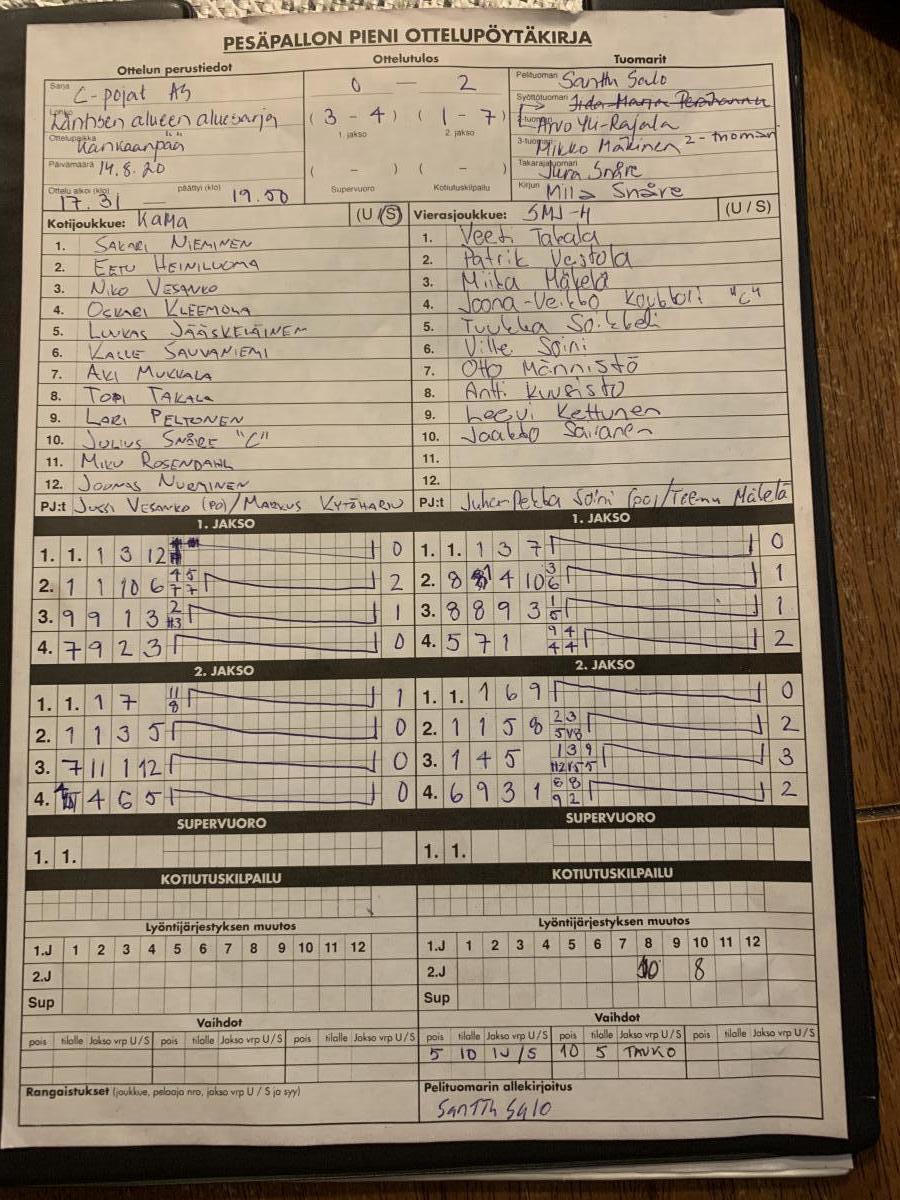 PESÄPALLON PIENI OTTELUPÖYTÄKIRJA
Ottelun perustiedot
Sarja C-pojat AS
Lohko Läntisen alueen aluesarja
Ottelupaikka Kankaanpää
Päivämäärä 14.8.20
Ottelu alkoi (klo) 17.31 — päättyi (klo) 19.50
Ottelutulos
0 — 2
( 3 - 4 ) ( 1 - 7 )
1. jakso 2. jakso
( - ) ( - )
Supervuoro Kotiutuskilpailu
Tuomarit
Pelituomari Santtu Salo
Syöttötuomari
2-tuomari Arvo Yli-Rajala
3-tuomari Mikko Mäkinen 2-tuomari
Takarajatuomari Jura Snåre
Kirjuri Mila Snåre
Kotijoukkue: KaMa (U / S)
1. SAKARI NIEMINEN
2. EETU HEINILUOMA
3. NIKO VESANKO
4. OSKARI KLEEMOLA
5. LUUKAS JÄÄSKELÄINEN
6. KALLE SAUVANIEMI
7. AKI MUKKALA
8. TOPI TAKALA
9. LARI PELTONEN
10. JULIUS SNÅRE "C"
11. MIKU ROSENDAHL
12. JOONAS NURMINEN
PJ:t JUSSI VESANKO (PO) / MARKUS KYTÖHARJU
Vierasjoukkue: SMJ-H (U / S)
1. Veeti Takala
2. Patrik Vestola
3. Miika Mäkelä
4. Joona-Veikko "C"
5. Tuukka Soikkeli
6. Ville Soini
7. Otto Männistö
8. Antti Kuusisto
9. Leevi Kettunen
10. Jaakko Sairanen
11.
12.
PJ:t Juha-Pekka Soini (po) / Teemu Mäkelä
1. JAKSO
1. 1. 1 3 12 0
2. 1 1 10 6 4 5 7 7 2
3. 9 9 1 3 2 1
4. 7 9 2 3 0
1. JAKSO
1. 1. 1 3 7 0
2. 8 4 10 3 6 1
3. 8 8 9 3 1 5 1
4. 5 7 1 9 4 4 4 2
2. JAKSO
1. 1. 1 7 11 8 1
2. 1 1 3 5 0
3. 7 11 1 12 0
4. 4 6 5 0
2. JAKSO
1. 1. 1 6 9 0
2. 1 1 5 8 2 3 2
3. 1 4 5 1 3 9 3
4. 6 9 3 1 8 8 9 2 2
SUPERVUORO
1. 1.
SUPERVUORO
1. 1.
KOTIUTUSKILPAILU
KOTIUTUSKILPAILU
Lyöntijärjestyksen muutos
1.J 1 2 3 4 5 6 7 8 9 10 11 12
2.J
Sup
Lyöntijärjestyksen muutos
1.J 1 2 3 4 5 6 7 8 9 10 11 12
2.J 10 8
Sup
Vaihdot
pois tilalle Jakso vrp U / S pois tilalle Jakso vrp U / S pois tilalle Jakso vrp U / S
Vaihdot
pois tilalle Jakso vrp U / S pois tilalle Jakso vrp U / S pois tilalle Jakso vrp U / S
5 10 1J/S 10 5 TAUKO
Rangaistukset (joukkue, pelaaja nro, jakso vrp U / S ja syy)
Pelituomarin allekirjoitus
Santtu Salo